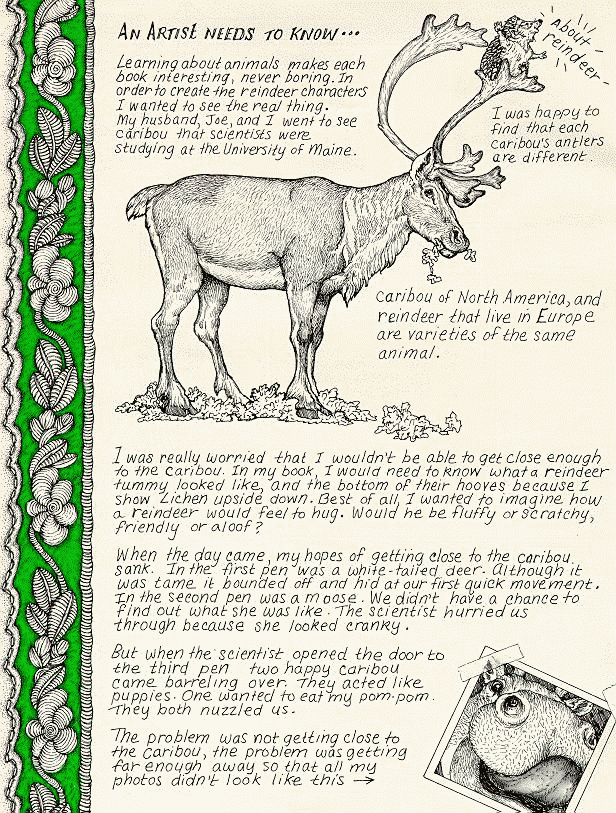 AN ARTIST NEEDS TO KNOW...
About
reindeer
Learning about animals makes each
book interesting, never boring. In
order to create the reindeer characters
I wanted to see the real thing.
My husband, Joe, and I went to see
caribou that scientists were
studying at the University of Maine.
I was happy to
find that each
caribou's antlers
are different.
Caribou of North America, and
reindeer that live in Europe
are varieties of the same
animal.
I was really worried that I wouldn't be able to get close enough
to the caribou. In my book, I would need to know what a reindeer
tummy looked like, and the bottom of their hooves because I
show Lichen upside down. Best of all, I wanted to imagine how
a reindeer would feel to hug. Would he be fluffy or scratchy,
friendly or aloof?
When the day came, my hopes of getting close to the caribou
sank. In the first pen was a white-tailed deer. Although it
was tame it bounded off and hid at our first quick movement.
In the second pen was a moose. We didn't have a chance to
find out what she was like. The scientist hurried us
through because she looked cranky.
But when the scientist opened the door to
the third pen two happy caribou
came barreling over. They acted like
puppies. One wanted to eat my pom-pom.
They both nuzzled us.
The problem was not getting close to
the caribou, the problem was getting
far enough away so that all my
photos didn't look like this →